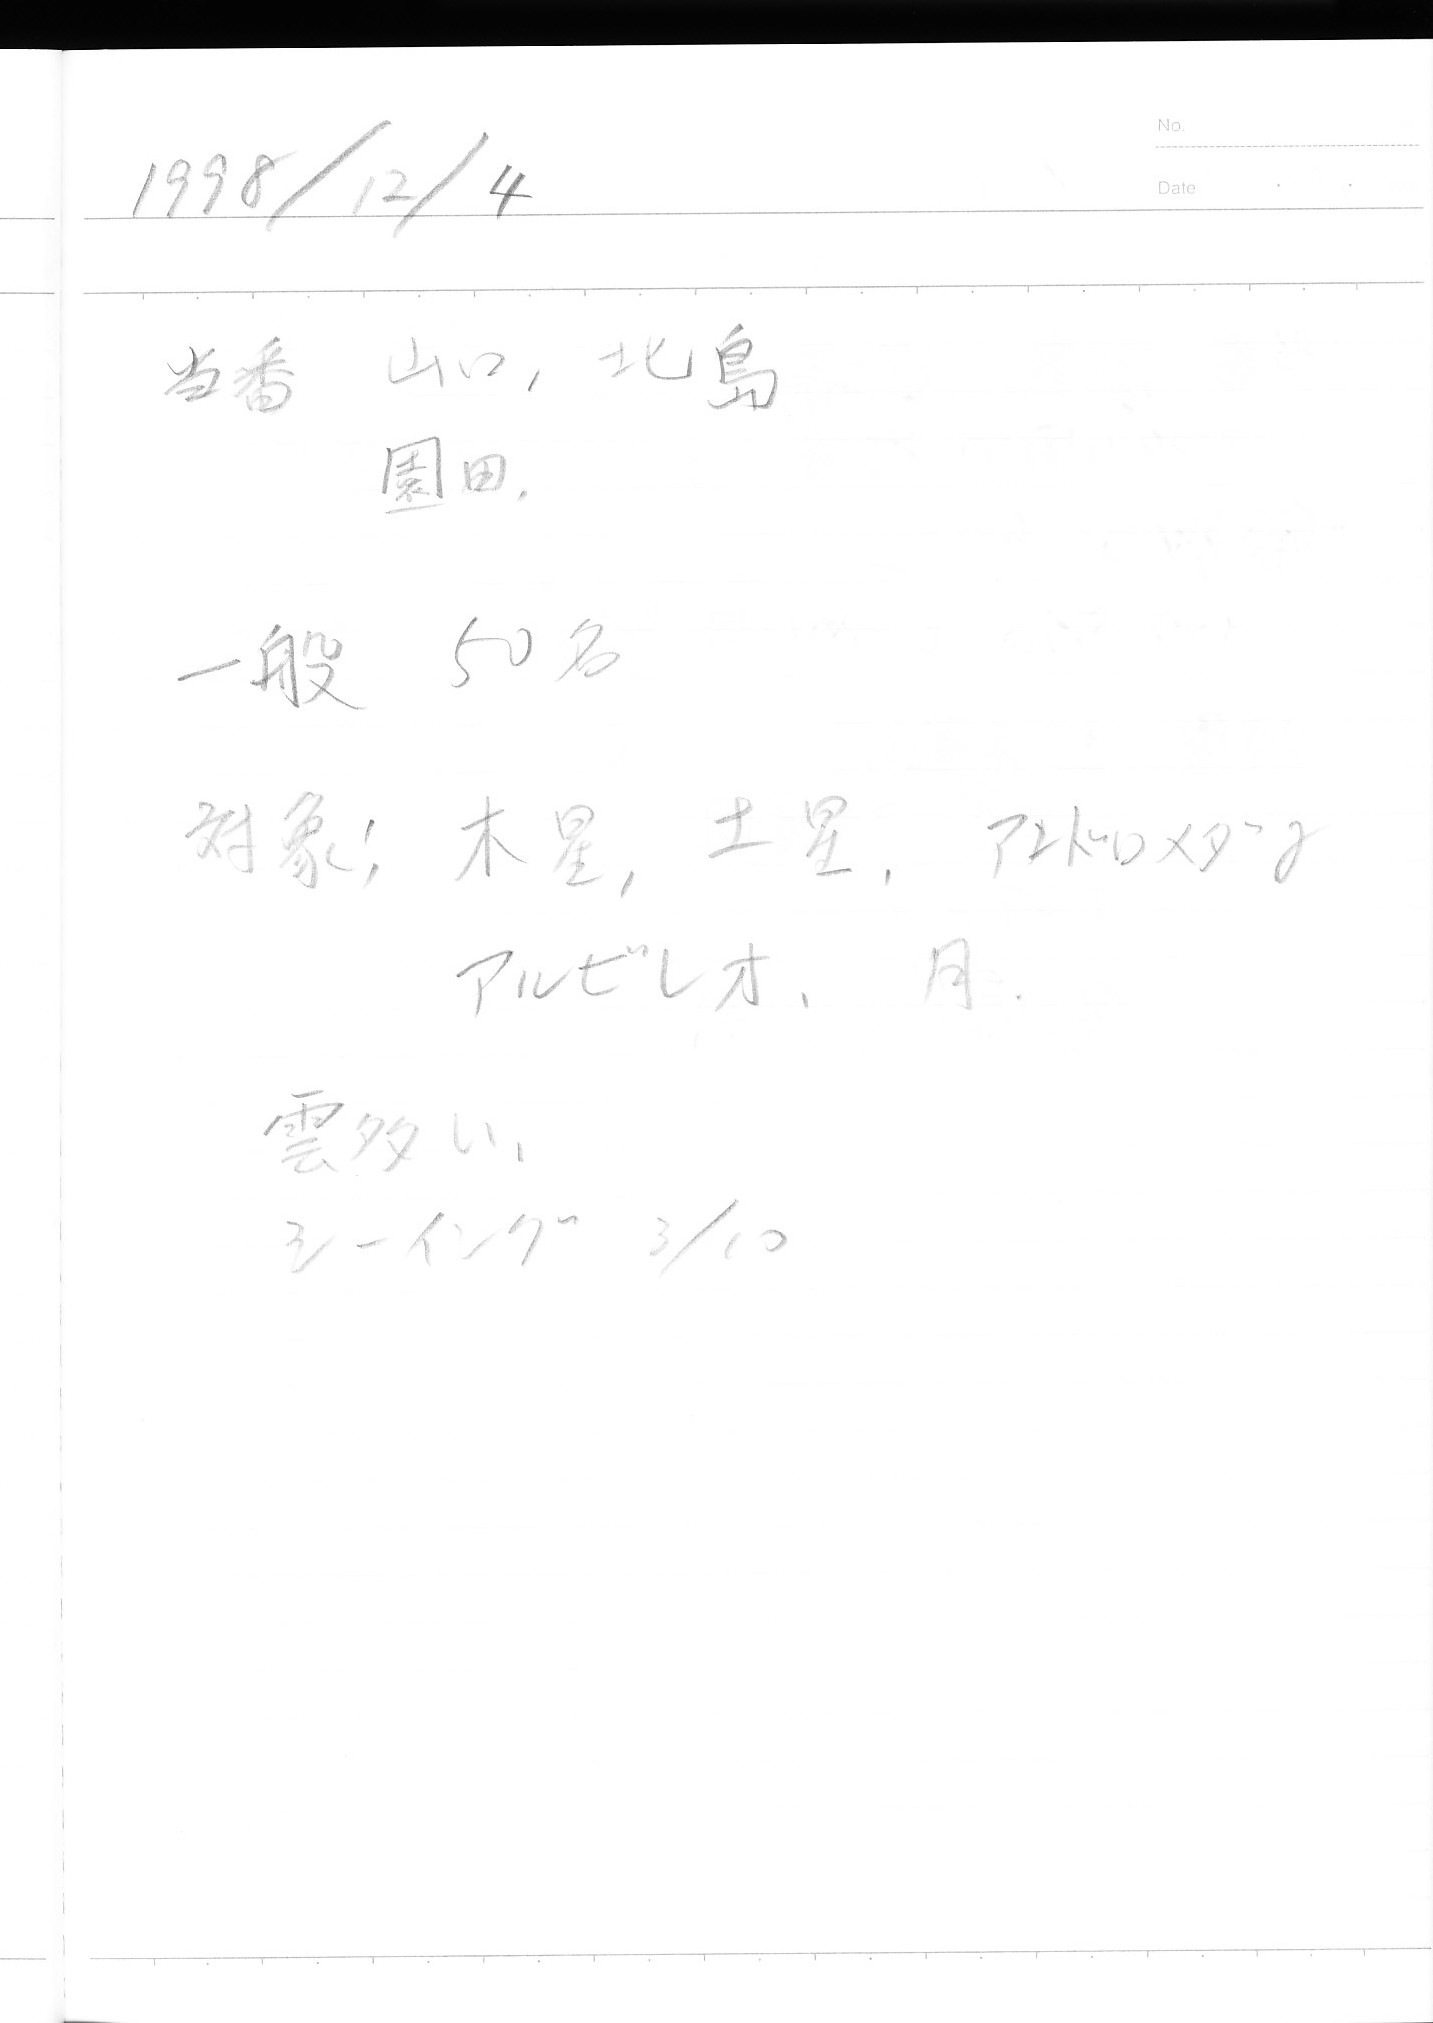 No.
1998/12/4
Date
当番 山口, 北島
園田,
一般 50名
対象; 木星, 土星, アンドロメダ
アルビレオ, 月.
雲多い,
シーイング 3/10